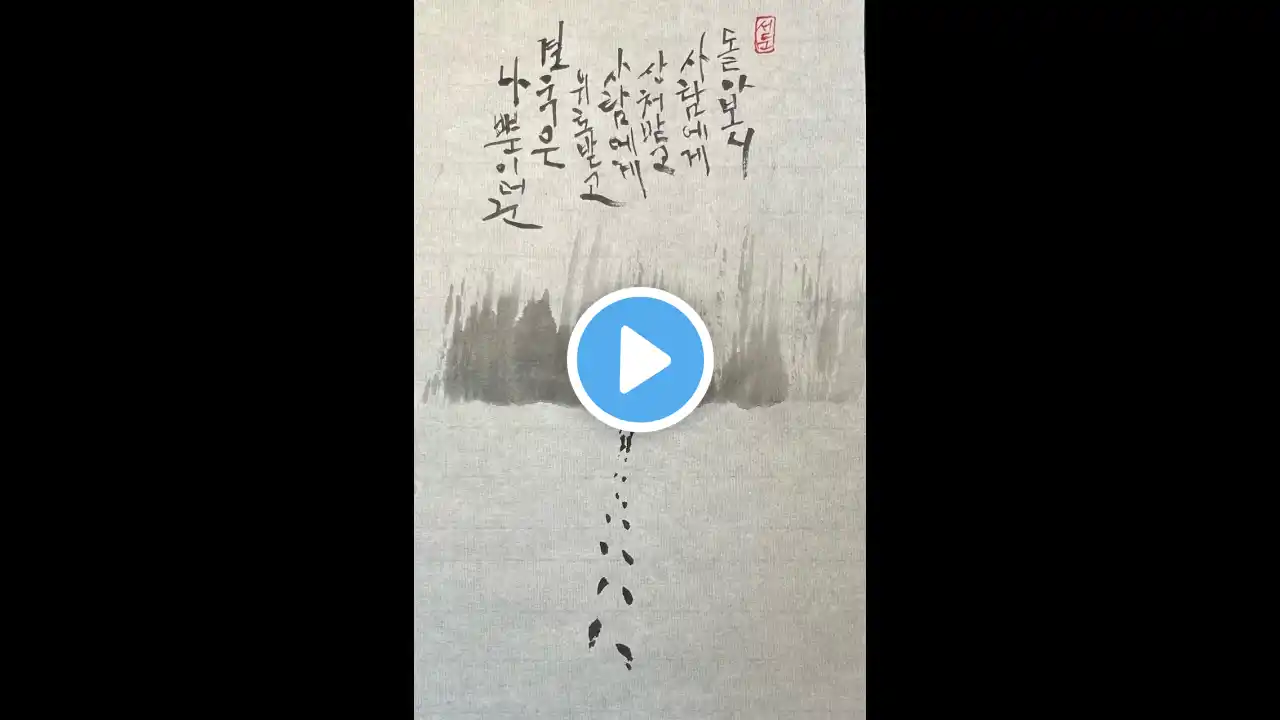 돌아보니
사람에게
상처받고
사람에게
위로받고
결국은
나뿐이더군